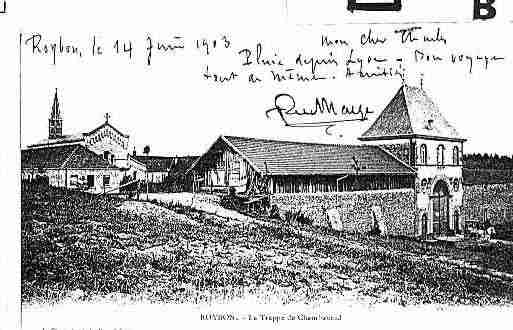 B
Roybon, le 14 Juin 1903 mon cher
Pluie depuis Lyon - Bon voyage
tout de même. Amitiés
ROYBON. - La Trappe de Chambarand